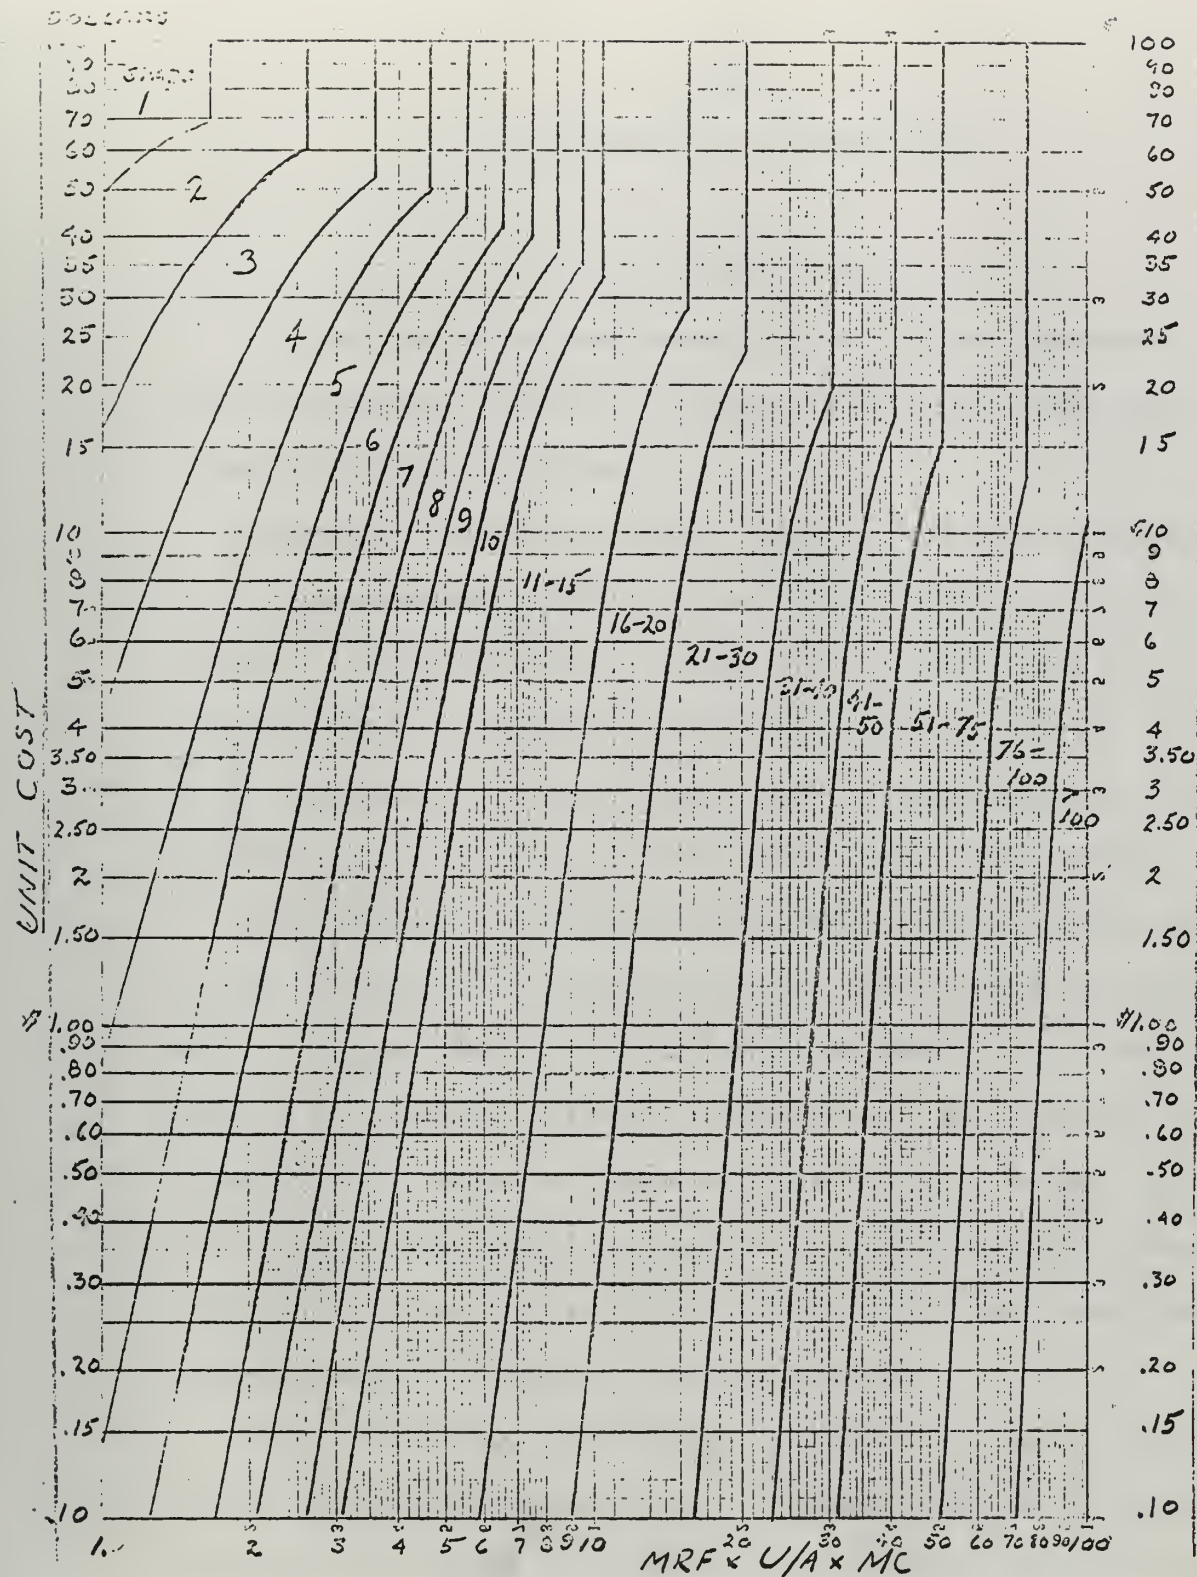 DOLLARS
100
90
80
70
60
50
40
35
30
25
20
15
10
8
7
6
5
4
3.50
3
2.50
2
1.50
$ 1.00
.90
.80
.70
.60
.50
.40
.30
.20
.15
.10
UNIT COST
1
2
3
4
5
6
7
8
9
10
11-15
16-20
21-30
31-40
41-
50
51-75
76-
100
>
100
100
90
80
70
60
50
40
35
30
25
20
15
$10
9
8
7
6
5
4
3.50
3
2.50
2
1.50
$1.00
.90
.80
.70
.60
.50
.40
.30
.20
.15
.10
1. 2 3 4 5 6 7 8 9 10 20 30 40 50 60 70 80 90 100
MRF x U/A x MC